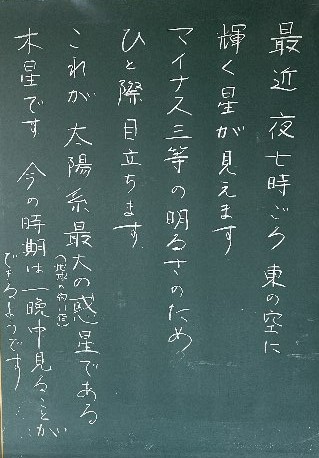 最近 夜七時ごろ 東の空に
輝く星が見えます
マイナス三等の明るさのため
ひと際目立ちます
これが太陽系最大の惑星である
木星です 今の時期は一晩中見ることが
できるようです